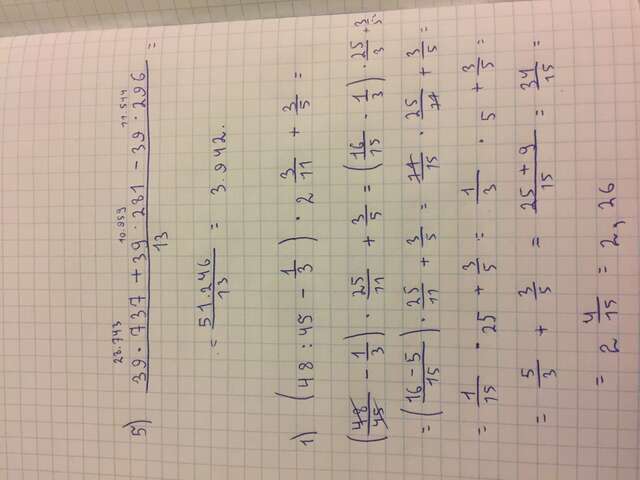 28.743 10.959 11.544
5) 39 · 737 + 39 · 281 - 39 · 296 =
13
= 51.246 / 13 = 3.942.
1) (48 : 45 - 1/3) · 2 3/11 + 3/5 =
(48/45 - 1/3) · 25/11 + 3/5 = (16/15 - 1/3) · 25/3 + 3/5
= (16 - 5 / 15) · 25/11 + 3/5 = 11/15 · 25/11 + 3/5 =
= 1/15 · 25 + 3/5 = 1/3 · 5 + 3/5 =
= 5/3 + 3/5 = 25 + 9 / 15 = 34/15 =
= 2 4/15 = 2,26